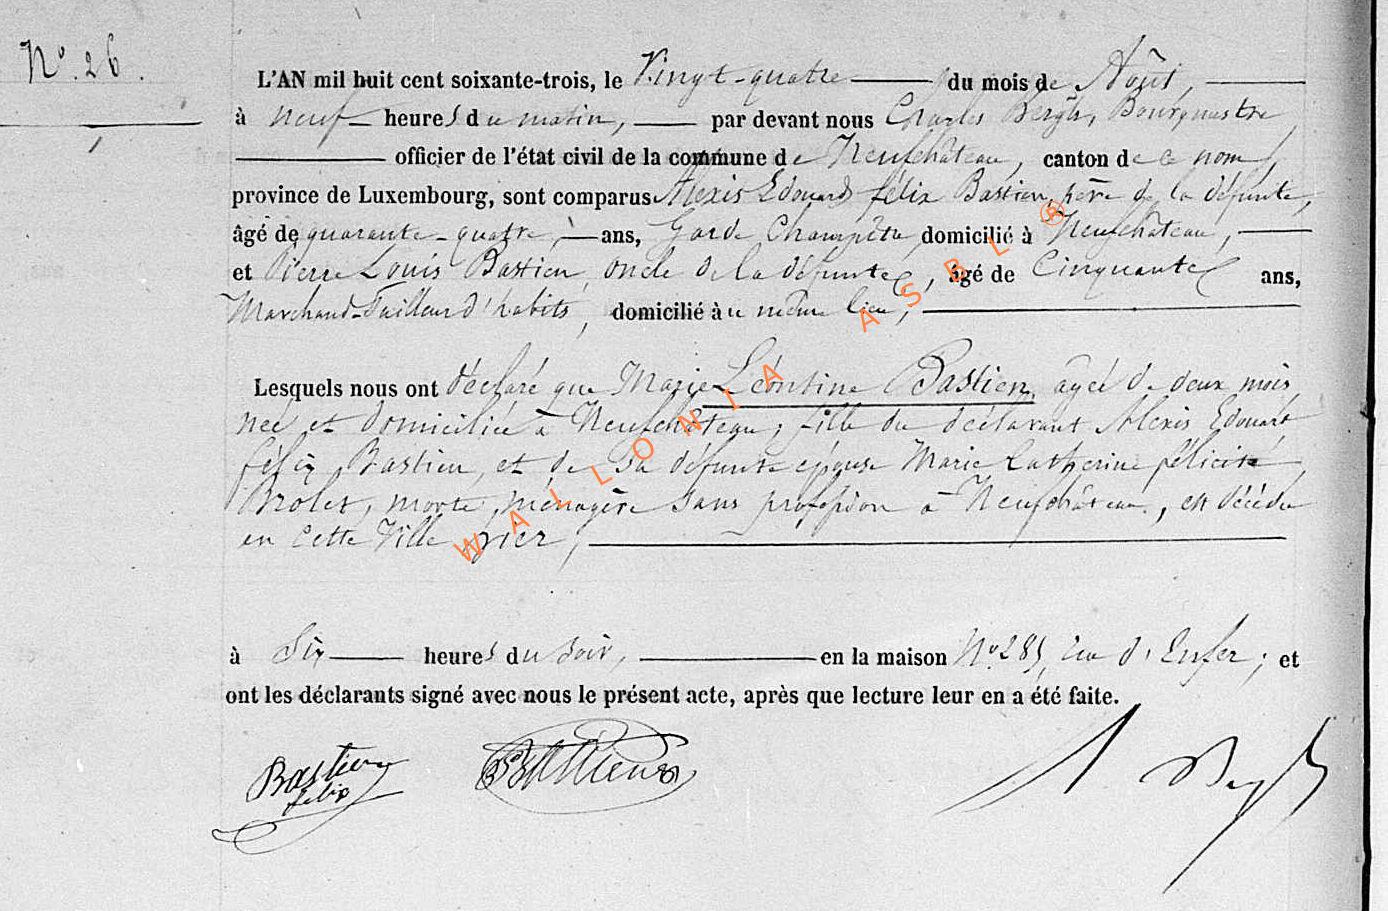 N° 26.
L'AN mil huit cent soixante-trois, le Vingt-quatre du mois de Août,
à neuf heures du matin, par devant nous Charles Bergh, Bourgmestre,
officier de l'état civil de la commune de Neufchâteau, canton de ce nom,
province de Luxembourg, sont comparus Alexis Edouard félix Bastien, père de la défunte,
âgé de quarante-quatre, ans, Garde Champêtre, domicilié à Neufchâteau,
et Pierre Louis Bastien, oncle de la défunte, âgé de Cinquante ans,
Marchand-Tailleur d'habits, domicilié au même lieu,
Lesquels nous ont déclaré que Marie Léontine Bastien, agée de deux mois
née et domiciliée à Neufchâteau, fille du déclarant Alexis Edouard
félix Bastien, et de sa défunte épouse Marie Catherine félicité
Brolet, morte, ménagère sans profession à Neufchâteau, est décédée
en cette Ville hier,
à Six heures du soir, en la maison N° 285, rue d'Enfer; et
ont les déclarants signé avec nous le présent acte, après que lecture leur en a été faite.
Bastien
felix
Bastien
WALLONIA ASBL ®